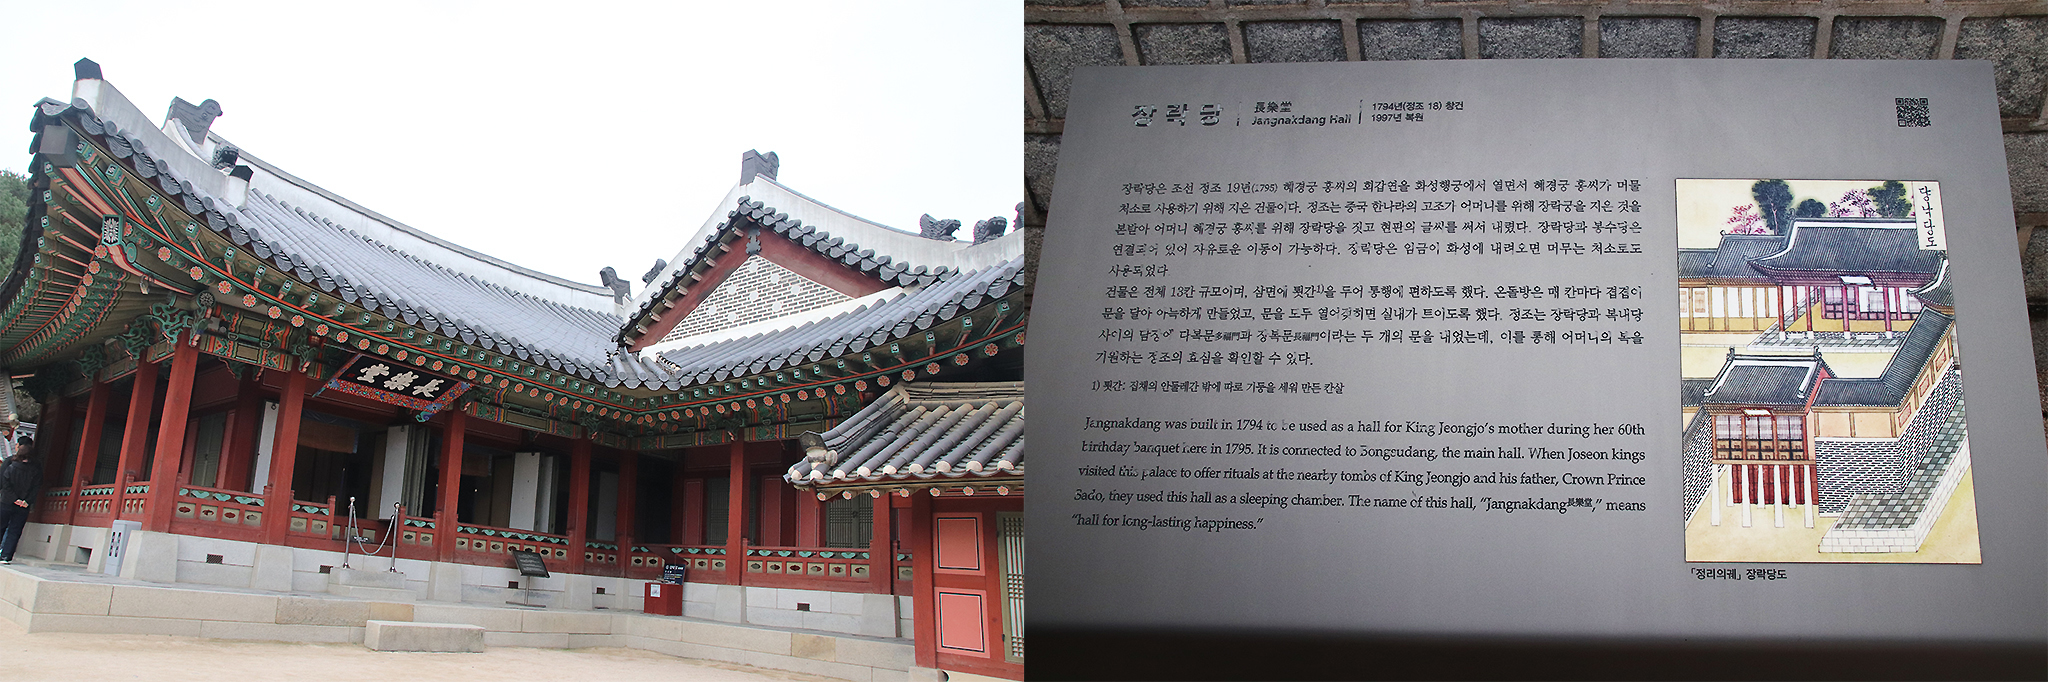 堂樂長
장락당
長樂堂
Jangnakdang Hall
1794년(정조 18) 창건
1997년 복원
장락당은 조선 정조 19년(1795) 혜경궁 홍씨의 회갑연을 화성행궁에서 열면서 혜경궁 홍씨가 머물
처소로 사용하기 위해 지은 건물이다. 정조는 중국 한나라의 고조가 어머니를 위해 장락궁을 지은 것을
본받아 어머니 혜경궁 홍씨를 위해 장락당을 짓고 현판의 글씨를 써서 내렸다. 장락당과 봉수당은
연결되어 있어 자유로운 이동이 가능하다. 장락당은 임금이 화성에 내려오면 머무는 처소로도
사용되었다.
건물은 전체 13칸 규모이며, 삼면에 툇간1)을 두어 통행에 편하도록 했다. 온돌방은 매 칸마다 겹겹이
문을 달아 아늑하게 만들었고, 문을 모두 열어젖히면 실내가 트이도록 했다. 정조는 장락당과 복내당
사이의 담장에 다복문多福門과 장복문長福門이라는 두 개의 문을 내었는데, 이를 통해 어머니의 복을
기원하는 정조의 효심을 확인할 수 있다.
1) 툇간: 집채의 안둘레간 밖에 따로 기둥을 세워 만든 칸살
Jangnakdang was built in 1794 to be used as a hall for King Jeongjo's mother during her 60th
birthday banquet here in 1795. It is connected to Bongsudang, the main hall. When Joseon kings
visited this palace to offer rituals at the nearby tombs of King Jeongjo and his father, Crown Prince
Sado, they used this hall as a sleeping chamber. The name of this hall, "Jangnakdang長樂堂," means
"hall for long-lasting happiness."
「정리의궤」 장락당도